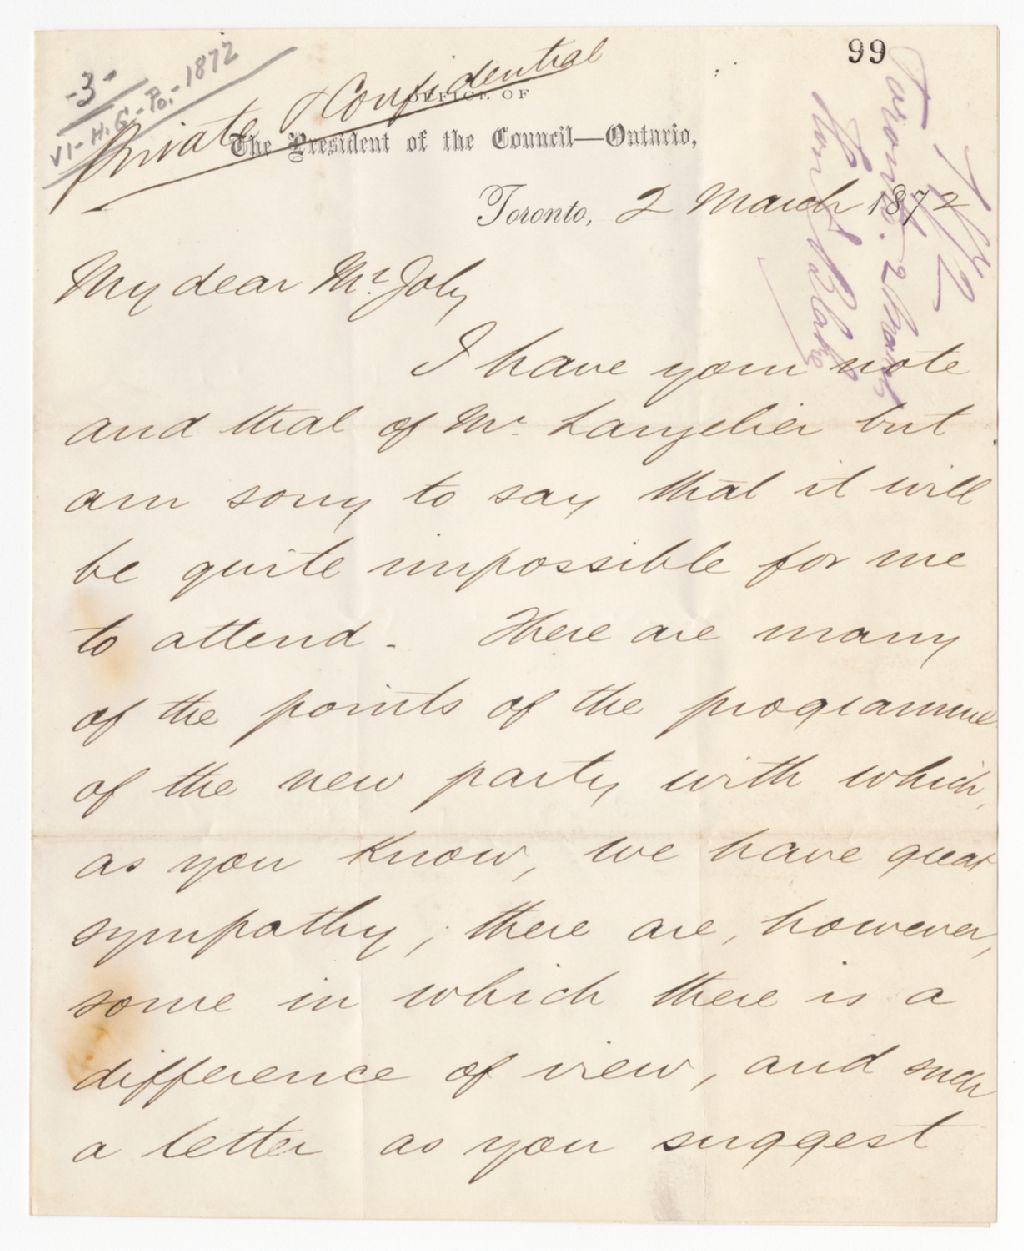 -3-
VI-H.G.-Po.-1872
99
Private & Confidential
OFFICE OF
The President of the Council—Ontario,
Toronto, 2 March 1872
1872
Toronto. 2 March
Hon. Blake
My dear Mr. Joly
I have your note
and that of Mr. Langelier but
am sorry to say that it will
be quite impossible for me
to attend - There are many
of the points of the programme
of the new party with which,
as you know, we have great
sympathy; there are, however,
some in which there is a
difference of view, and such
a letter as you suggest